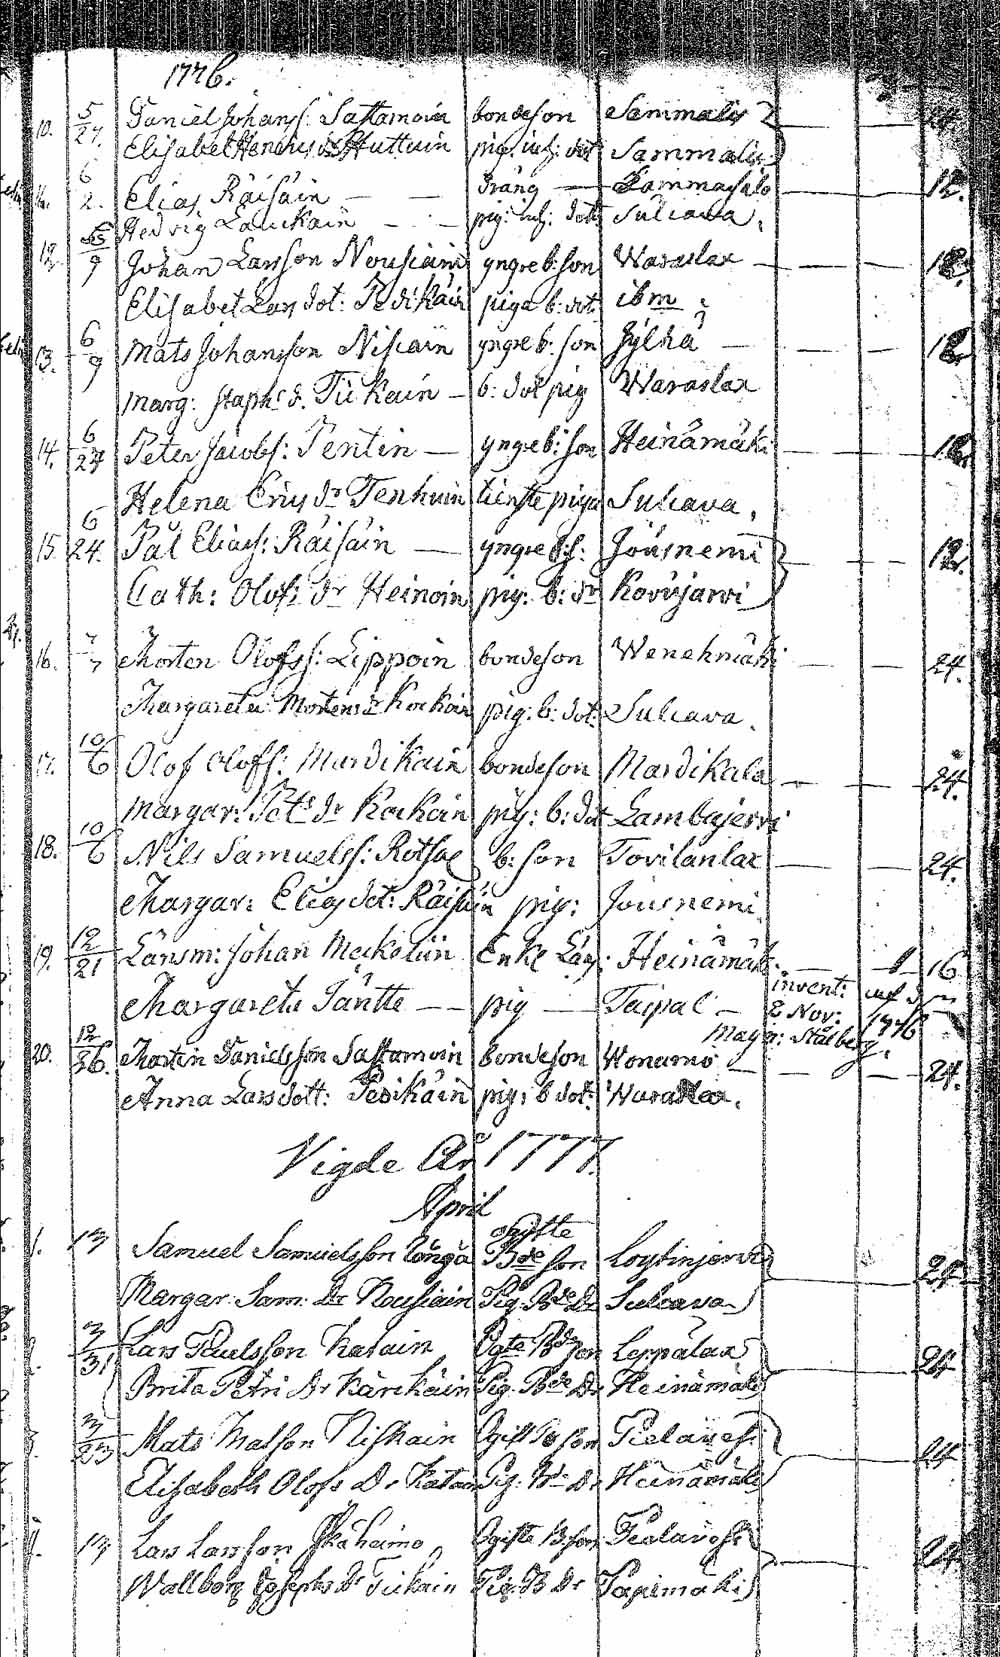 1776.
10. 5/27. Daniel Johanss: Sastamoin bondeson Sammalis — — 24.
Elisabet Henrichsd. Huttuin pig. inh: dot Sammalis
11. 6/2. Elias Räisäin — — dräng — Lammasalo — — 12.
Hedvig Lauckain — — pig: inh: dott Sulcava.
12. 9 Johan Larsson Nousiain yngre b:son Waraslax — — 12.
Elisabet Lars dot: Pedikäin piga b: dot: ibm
13. 6/9 Mats Johansson Niscain yngre b: son Jylhä — — — 12.
Marg: Staph: d. Tickain — b: dot pig Waraslax
14. 6/24 Peter Jacobs: Pentin — yngre b: son Heinämäki — — 12.
Helena Erics dr Tenhuin tienste piga Sulcava.
15. 6/24. Pål Eliass: Räisäin — yngre b:s: Jousnemi — — 12.
Cath: Olofs dr Heinoin pig: b: dr Kovujärvi
16. 7/7 Morten Olofss: Lippoin bondeson Wenehmäki — — 24.
Margareta Mortens dr Kockoin pig: b: dot: Sulcava.
17. 10/6 Olof Olofs: Mardikain bondeson Mardikala — — 24.
Margar: Pet: dr Kockoin pig: b: dot Lambajervi
18. 10/6 Nils Samuelss: Rotsa b: son Tovilanlax — — 24.
Margar: Elias dot: Räisäin pig: Jousnemi.
19. 12/21 Länsm: Johan Meckelin Enkl. Heinämäk. — 1 16
Margareta Jäntte — pig — Taipal — invent: af
2 Nov: 1776
Mag:r: Stålberg.
20. 12/26. Martin Danielsson Sastamoin bondeson Wonamo — — 24.
Anna Larsdott: Pedikäin pig: b dot: Waraslax.
Vigde År 1777.
April
1. 13 Samuel Samuelsson ogifte Bde son Loytinjervi 24
Margar: Sam: Dr Nousiain Pig. Bde Dr Sulcava
3/31 Lars Paulsson Katain Ogte Bde son Leppälax 24
Brita Petri Dr Kärckäin Pig. Bde Dr Heinämäki
3/23 Mats Matson Niskain Ogift B son Pielavesi 24
Elisabeth Olofs Dr Katain Pig. Bde Dr Heinämäki
13 Lars Larsson Ogifte B son Pielavesi 24
Wallborg Josephs Dr Tickain Pig. B Dr Papimäki